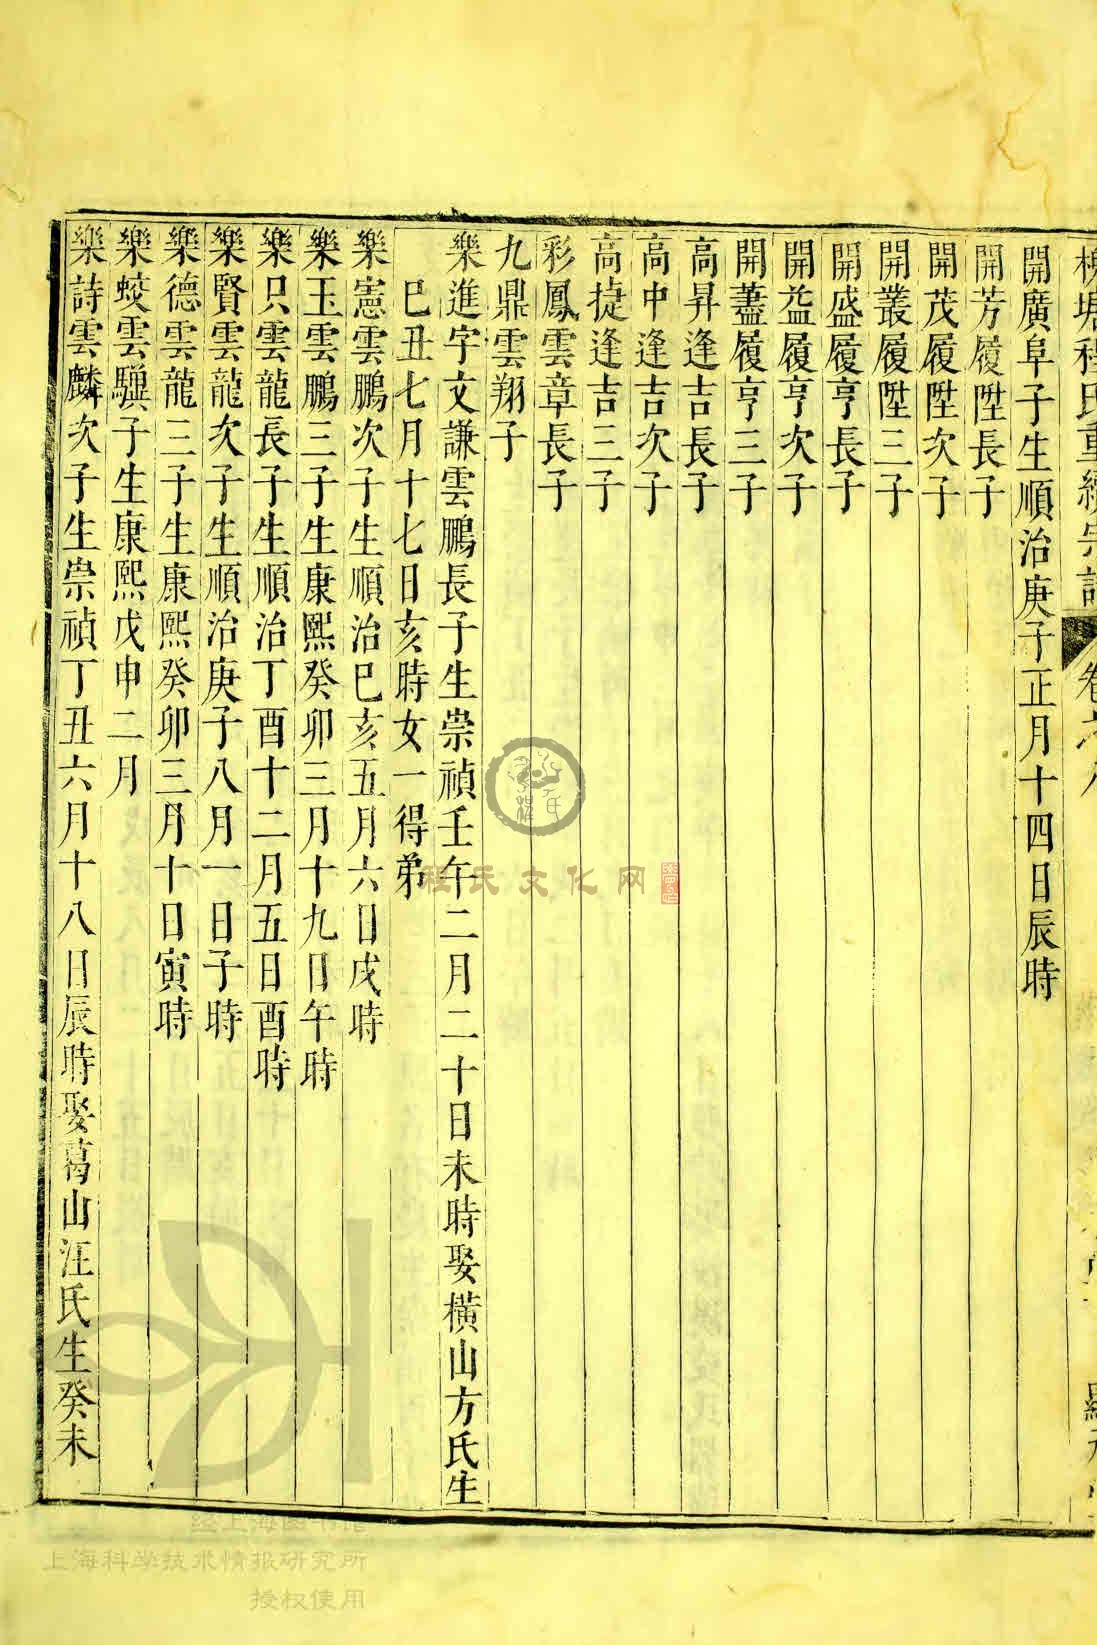 槐塘程氏重續宗譜 卷之八
開廣阜子生順治庚子正月十四日辰時
開芳履陞長子
開茂履陞次子
開叢履陞三子
開盛履亨長子
開益履亨次子
開藎履亨三子
高昇逢吉長子
高中逢吉次子
高捷逢吉三子
彩鳳雲章長子
九鼎雲翔子
樂進字文謙雲鵬長子生崇禎壬午二月二十日未時娶橫山方氏生
巳丑七月十七日亥時女一得弟
樂憲雲鵬次子生順治巳亥五月六日戌時
樂玉雲鵬三子生康熙癸卯三月十九日午時
樂只雲龍長子生順治丁酉十二月五日酉時
樂賢雲龍次子生順治庚子八月一日子時
樂德雲龍三子生康熙癸卯三月十日寅時
樂蛟雲驥子生康熙戊申二月
樂詩雲麟次子生崇禎丁丑六月十八日辰時娶葛山汪氏生癸未
程氏文化网
上海科学技术情报研究所
授权使用